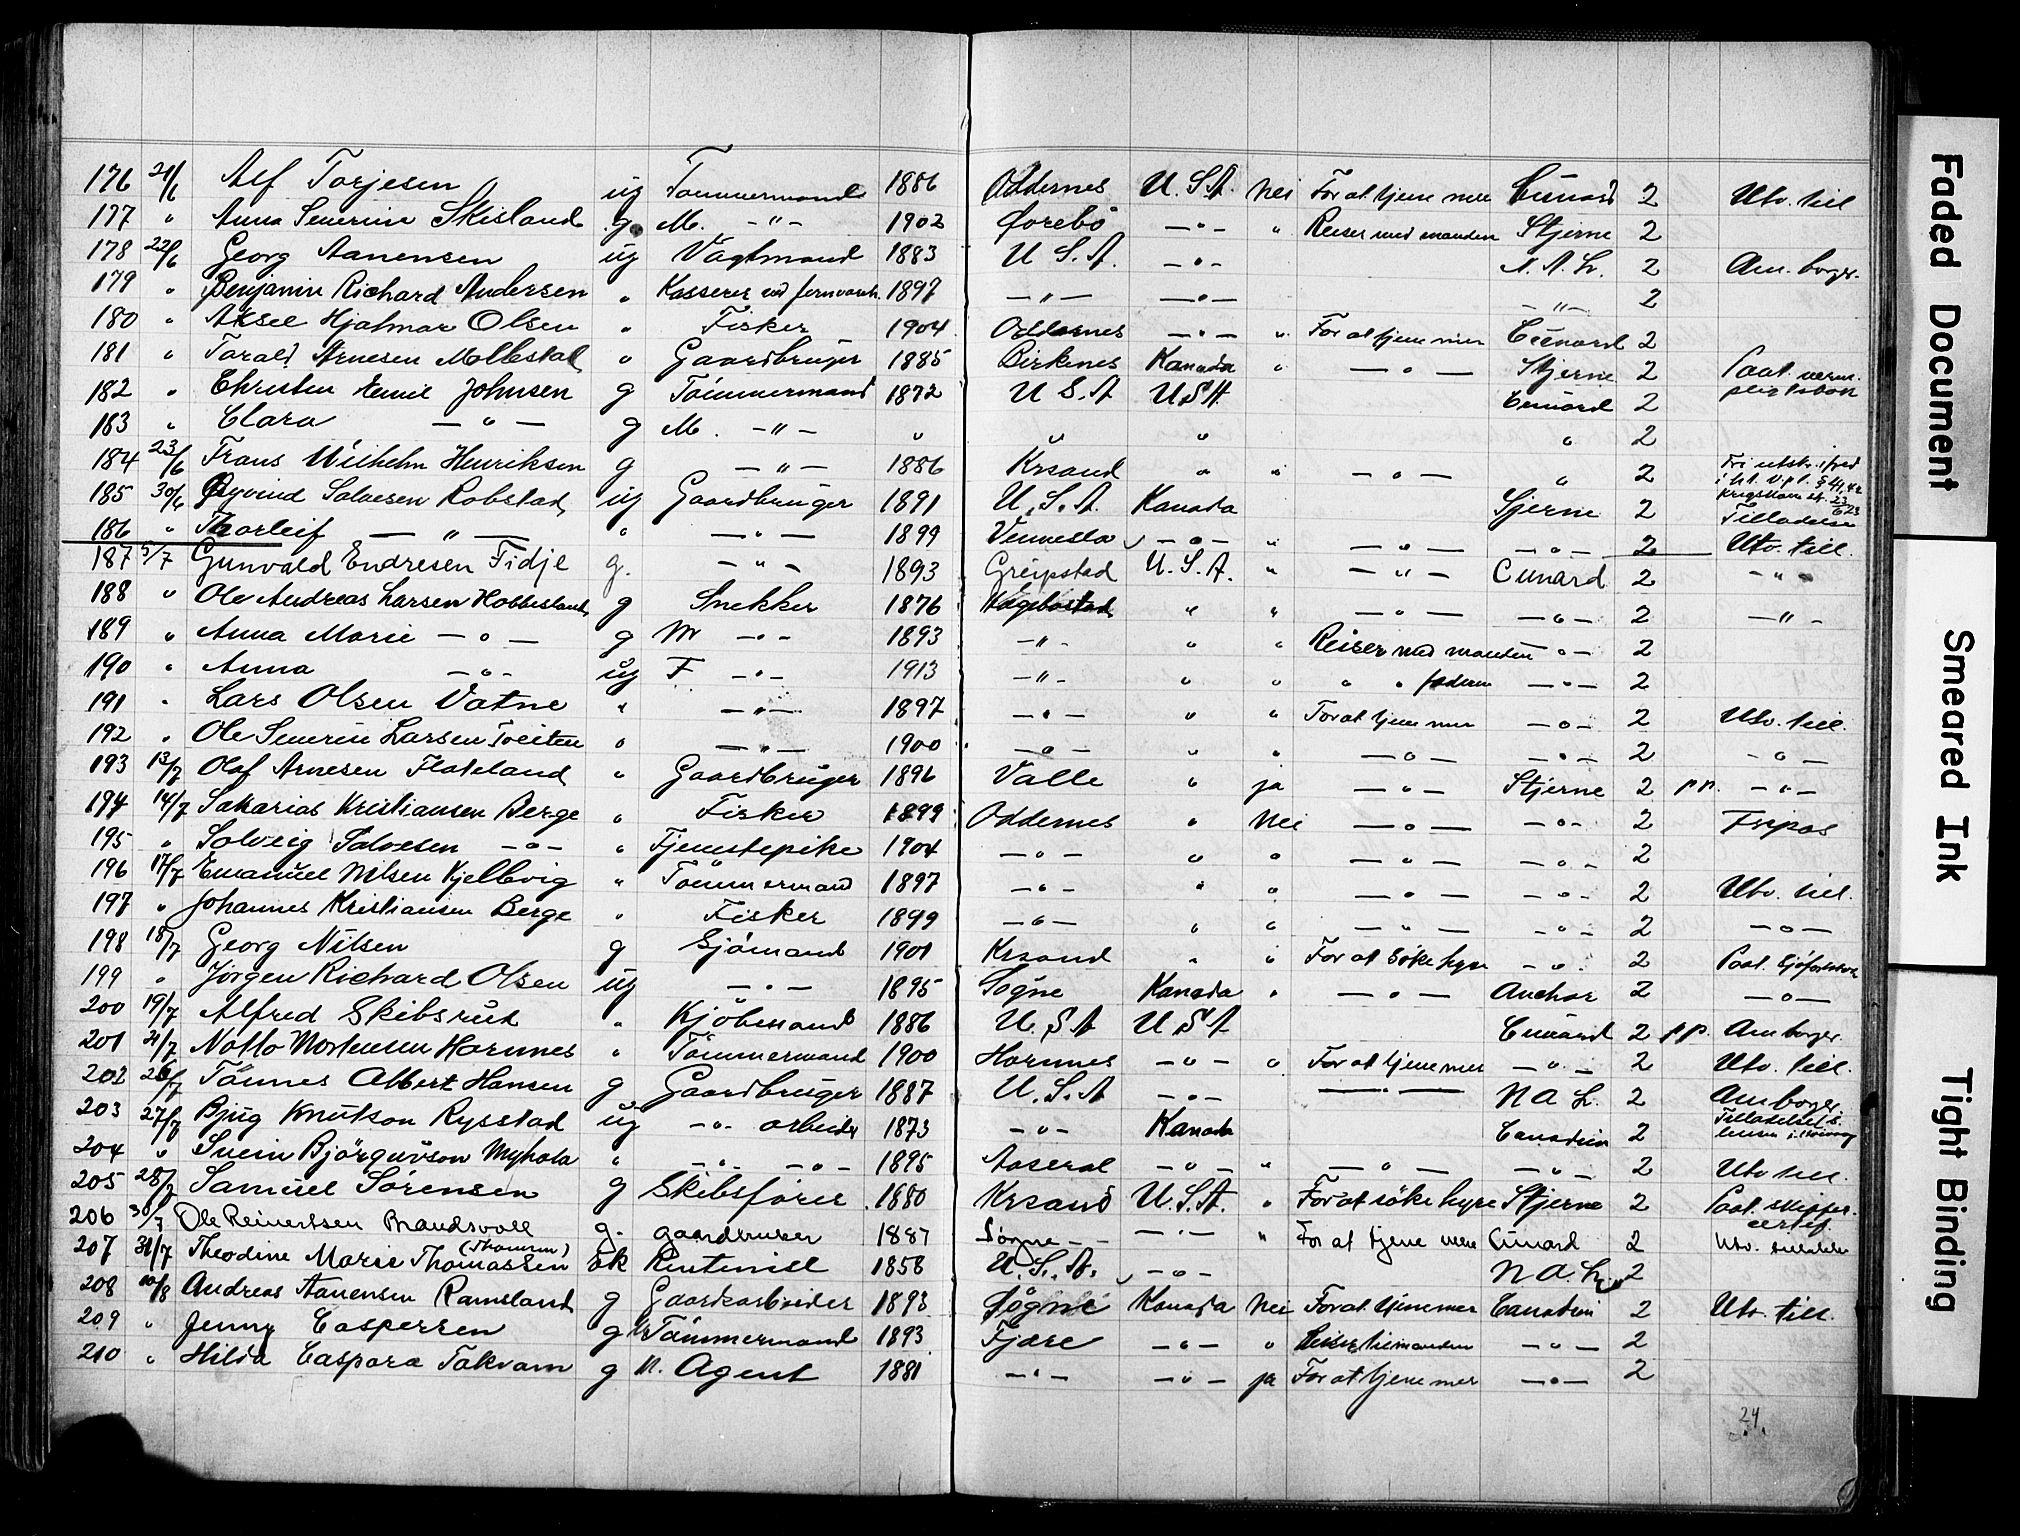 176 21/6 Alf Torjesen ug Tømmermand 1886 Oddernes U.S.A. Nei For at tjene mer Cunard 2 Utv. till
177 " Anna Severine Skisland g. M. -"- 1902 Øvrebö -"- " Reiser med manden Stjerne 2
178 22/6 Georg Aanensen ug Vagtmand 1883 U.S.A. -"- N.A.L. 2 Am. borger.
179 " Benjamin Richard Andersen " Kasserer ved jernvareh. 1897 -"- -"- -"- 2
180 " Aksel Hjalmar Olsen " Fisker 1904 Oddernes -"- " For at tjene mer Cunard 2
181 " Torald Arnesen Mollestad " Gaardbruger 1885 Birkenes Kanada " -"- Stjerne 2 Paat. vern-
pligtsbok
182 " Christen Emil Johnsen g Tömmermand 1872 U.S.A U.S.A. Cunard 2
183 " Clara -"- g M. -"- " " " " 2
184 23/6 Frans Wilhelm Henriksen g -"- 1886 Krsand " " -"- " 2
185 30/6 Øyvind Salvesen Robstad ug Gaardbruger 1891 U.S.A. Kanada Stjerne 2 Tilladelse
186 " Thorleif -"- " -"- 1899 Vennesla -"- " -"- -"- 2 Utv. till.
187 5/7 Gunvald Endresen Tidje g. -"- 1893 Greipstad U.S.A. " -"- Cunard 2 -"-
188 " Ole Andreas Larsen Hobbesland g Snekker 1876 Hægebostad " " -"- -"- 2 -"-
189 " Anna Marie -"- g M -"- 1893 -"- " " Reiser med manden -"- 2
190 " Anna -"- ug F -"- 1913 -"- " " " " faderen -"- 2
191 " Lars Olsen Vatne " -"- 1897 -"- " " For at tjene mer -"- 2 Utv. till.
192 " Ole Severin Larsen Tveiten " -"- 1900 -"- " " -"- -"- 2 -"-
193 13/7 Olaf Arnesen Flateland " Gaardbruger 1896 Valle " ja -"- Stjerne 2 p.p. -"-
194 14/7 Sakarias Kristiansen Berge " Fisker 1899 Oddernes " Nei -"- -"- 2 Fripas
195 " Solveig Salvesen -"- " Tjenestepike 1904 -"- " " -"- -"- 2
196 17/7 Emanuel Nilsen Kjellevig " Tömmermand 1897 -"- " " -"- -"- 2 Utv. till.
197 " Johannes Kristiansen Berge " Fisker 1899 -"- " " -"- -"- 2 -"-
198 18/7 Georg Nilsen g Sjömand 1901 Krsand " " For at söke hyre -"- 2 Paat. Sjøfartsbok
199 " Jørgen Richard Olsen ug -"- 1895 Søgne Kanada " -"- Anchor 2 -"-
200 19/7 Alfred Skibsrud " Kjöbmand 1886 U.S.A U.S.A Cunard 2 p.p. Am borger
201 21/7 Notto Mortensen Hornnes " Tömmermand 1900 Hornnes -"- " For at tjene mer -"- 2 Utv. till.
202 26/7 Tönnes Albert Hansen g Gaardbruger 1887 U.S.A -"- -"- N A L. 2 Am borger.
203 27/7 Bjug Knutson Rysstad ug -"- arbeider 1873 -"- Kanada Canadian 2
204 " Svein Björguvson Myhola " -"- -"- 1895 Aaseral -"- " -"- -"- 2 Utv till.
205 28/7 Samuel Sørensen g Skibsfører 1880 Krsand U.S.A. " For at söke hyre Stjerne 2 Paat. skipper-
certif.
206 30/7 Ole Reinertsen Brandsvoll g. gaardbruker 1887 Søgne -"- " For at tjene mere Cunard 2 Utv. tilladelse
207 31/7 Theodine Marie Thomassen (Thomsen) Ek Rentenist 1858 U.S.A. -"- N A. L. 2
208 10/8 Andreas Aanensen Ramsland g Gaardsarbeider 1893 Søgne Kanada Nei For at tjene mer Canadian 2 Utv. till.
209 " Jenny Caspersen g M Tömmermand 1893 Fjære -"- " Reiser til manden -"- 2
210 " Hilda Caspara Takvam g M. Agent 1881 -"- -"- ja For at tjene mer -"- 2
24.
Faded Document
Smeared Ink
Tight Binding